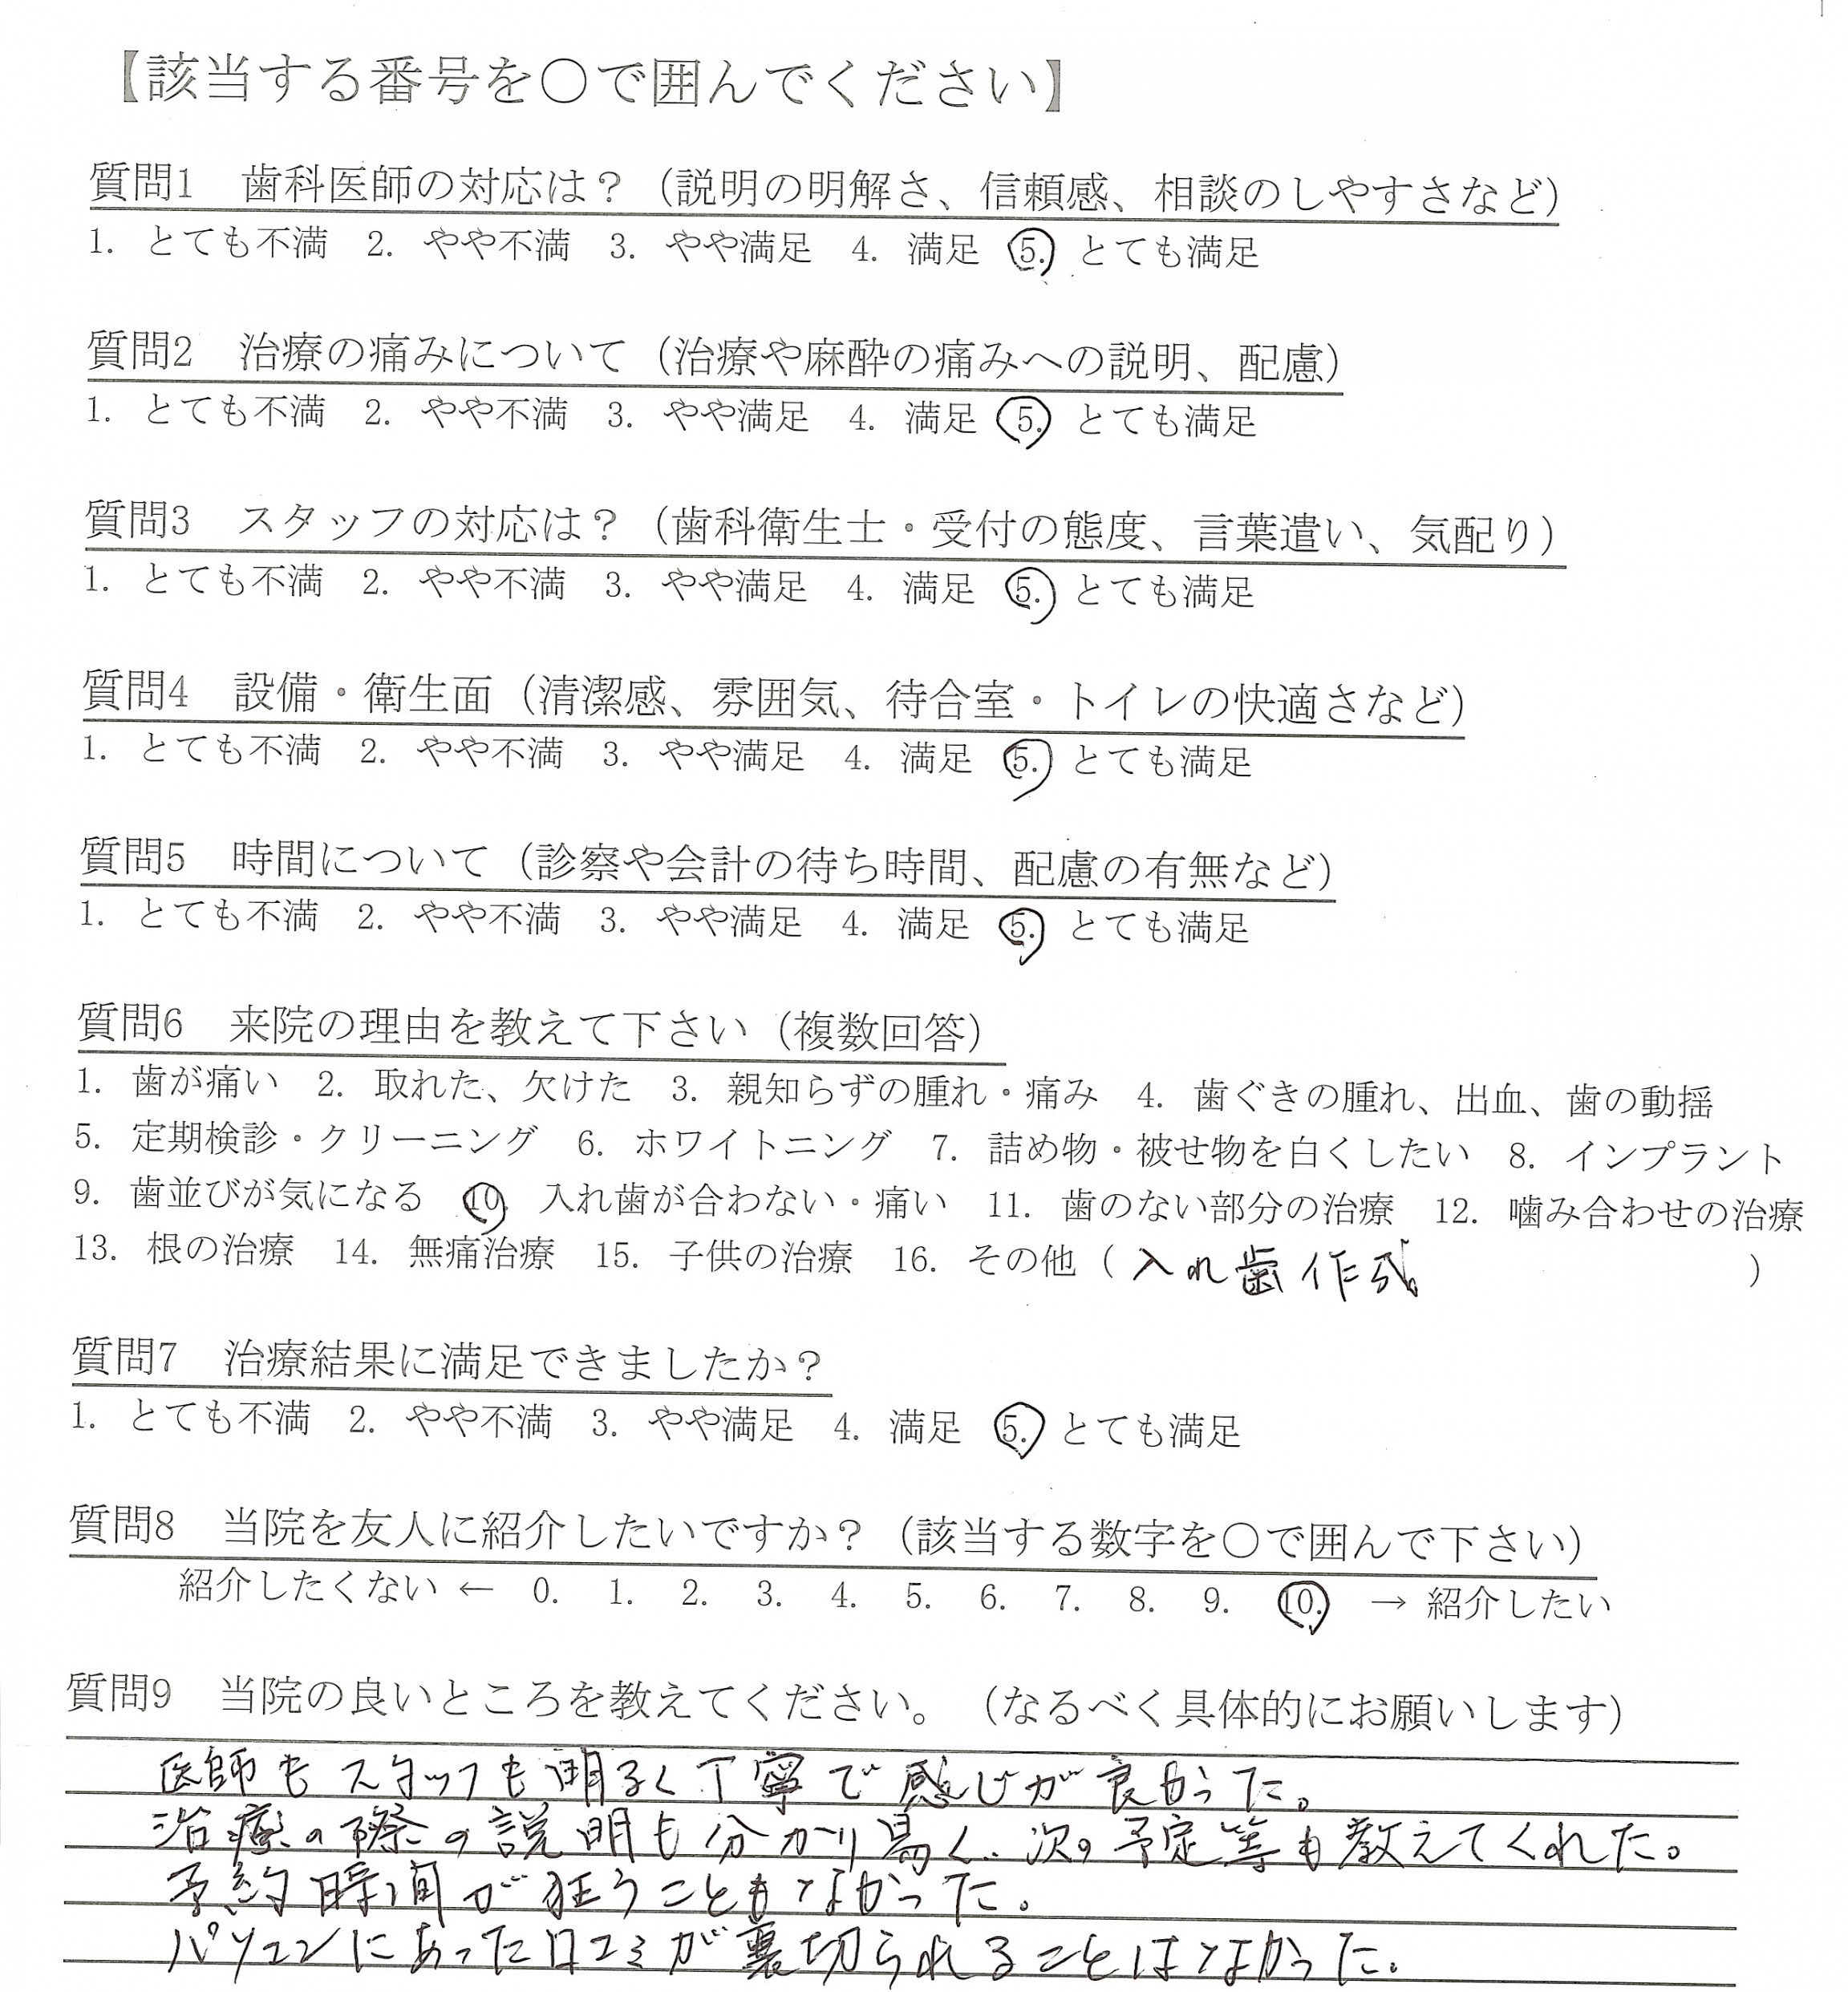 【該当する番号を〇で囲んでください】
質問1　歯科医師の対応は？（説明の明解さ、信頼感、相談のしやすさなど）
1. とても不満　2. やや不満　3. やや満足　4. 満足　5. とても満足
質問2　治療の痛みについて（治療や麻酔の痛みへの説明、配慮）
1. とても不満　2. やや不満　3. やや満足　4. 満足　5. とても満足
質問3　スタッフの対応は？（歯科衛生士・受付の態度、言葉遣い、気配り）
1. とても不満　2. やや不満　3. やや満足　4. 満足　5. とても満足
質問4　設備・衛生面（清潔感、雰囲気、待合室・トイレの快適さなど）
1. とても不満　2. やや不満　3. やや満足　4. 満足　5. とても満足
質問5　時間について（診察や会計の待ち時間、配慮の有無など）
1. とても不満　2. やや不満　3. やや満足　4. 満足　5. とても満足
質問6　来院の理由を教えて下さい（複数回答）
1. 歯が痛い　2. 取れた、欠けた　3. 親知らずの腫れ・痛み　4. 歯ぐきの腫れ、出血、歯の動揺
5. 定期検診・クリーニング　6. ホワイトニング　7. 詰め物・被せ物を白くしたい　8. インプラント
9. 歯並びが気になる　10. 入れ歯が合わない・痛い　11. 歯のない部分の治療　12. 噛み合わせの治療
13. 根の治療　14. 無痛治療　15. 子供の治療　16. その他（入れ歯作成）
質問7　治療結果に満足できましたか？
1. とても不満　2. やや不満　3. やや満足　4. 満足　5. とても満足
質問8　当院を友人に紹介したいですか？（該当する数字を〇で囲んで下さい）
紹介したくない ← 0. 1. 2. 3. 4. 5. 6. 7. 8. 9. 10. → 紹介したい
質問9　当院の良いところを教えてください。（なるべく具体的にお願いします）
医師もスタッフも明るく丁寧で感じが良かった。
治療の際の説明も分かり易く、次の予定等も教えてくれた。
予約時間が狂うこともなかった。
パソコンにあった口コミが裏切られることはなかった。